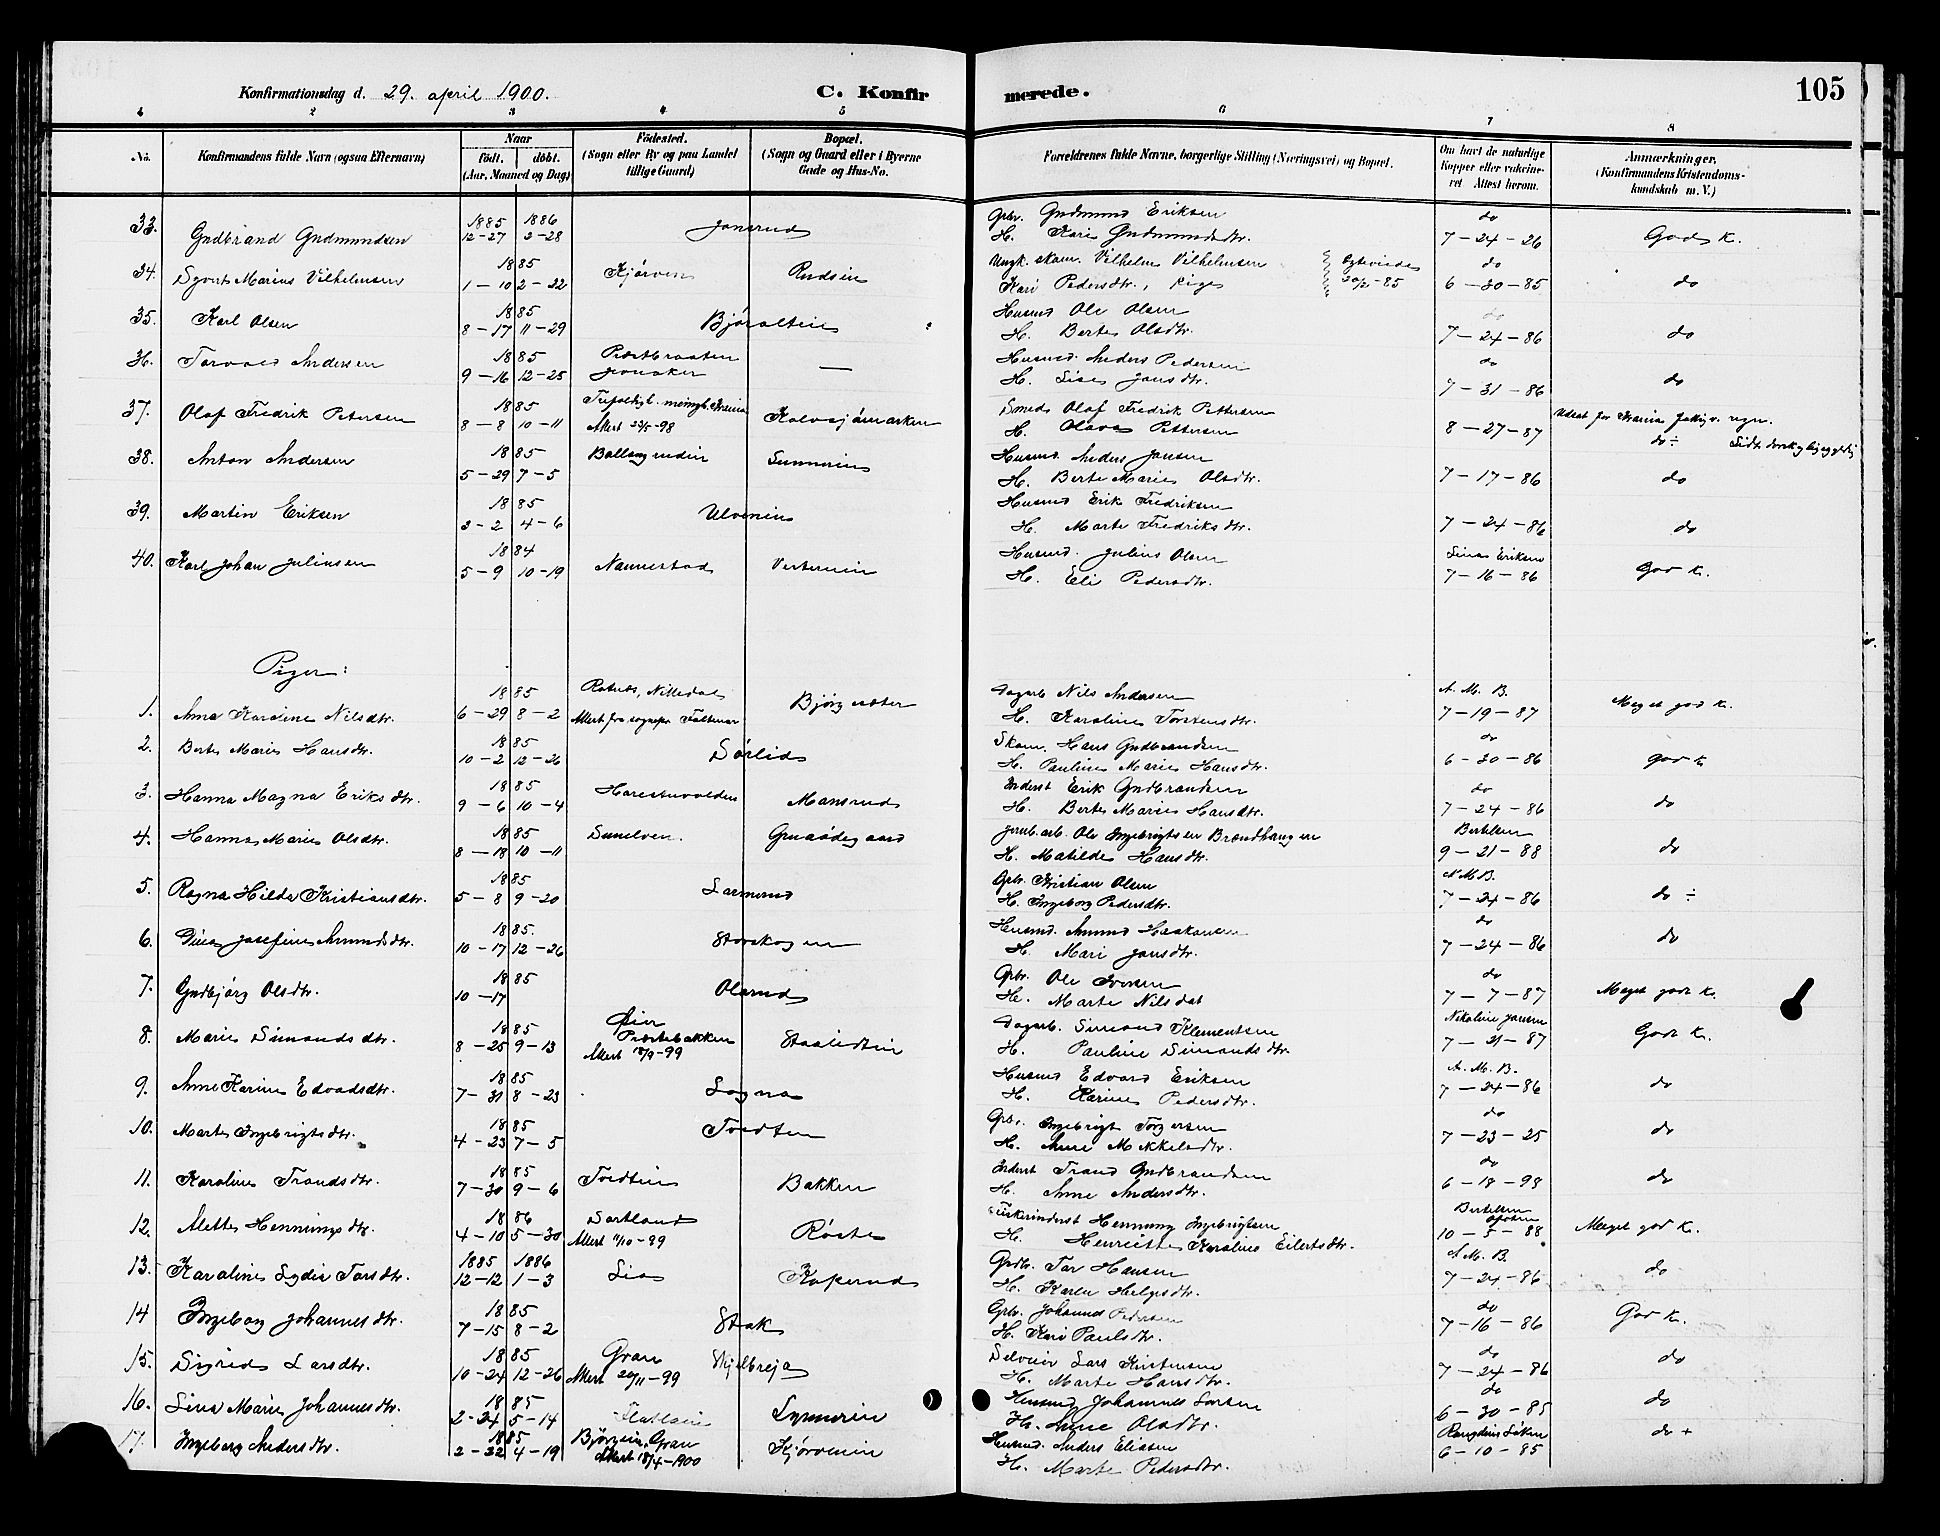 105
Konfirmationsdag d. 29. april 1900. C. Konfirmerede.
1 2 3 4 5 6 7 8
No. Konfirmandens fulde Navn (ogsaa Efternavn) Naar födt. döbt. (Aar, Maaned og Dag) Födested. (Sogn eller By og paa Landet tillige Gaard) Bopæl. (Sogn og Gaard eller i Byerne Gade og Hus-No. Forældrenes fulde Navne, borgerlige Stilling (Næringsvei) og Bopæl. Om havt de naturlige Kopper eller vakcineret Attest herom. Anmærkninger. (Konfirmandens Kristendomskundskab m. V.)
33. Gudbrand Gudmundsen 1885 12-27 1886 2-28 Jonsrud Gbr. Gudmund Eriksen H. Kari Gudmundsdtr. do 7-24-26 Gods K.
34. Syvert Marius Vilhelmsen 1885 1-10 2-22 Kjørven Rudsein Ungk. skom. Vilhelm Vilhelmsen Kari Pedersdtr., Pige Egteviede -85 do 6-30-85 do
35. Karl Olsen 1885 8-17 11-29 Bjøralteie Husmd Ole Olsen H. Berte Olsdtr. do 7-24-86 do
36. Torvald Andersen 1885 9-16 12-25 Præstbraaten Jevnaker — Husmd. Anders Pedersen H. Lise Jansdtr. do 7-31-86 do
37. Olaf Fredrik Petersen 1885 8-8 10-11 Attest 23/5-98 Kalvsjømarken Smed Olaf Fredrik Pettersen H. Olava Pettersen 8-27-87 do ÷
38. Anton Andersen 1885 5-29 7-5 Ballangrudein Sunnrein Husmd. Anders Jansen H. Berte Marie Olsdtr. 7-17-86 do
39. Martin Eriksen 1885 3-2 4-6 Ulvenein Husmd Erik Fredriksen H. Marte Fredriksdtr. 7-24-86 do
40. Karl Johan Juliussen 1884 5-9 10-19 Nannestad Vesternein Husmd. Julius Olsen H. Eli Pedersdtr. Sina Eriksen 7-16-86 God K.
Piger:
1. Anna Karoline Nilsdtr. 1885 6-29 8-2 Rotnes, Nittedal Attest fra sognepr. Faltenar Bjørgsæter Dagarb Nils Andersen H. Karoline Torstensdtr. A. M. B. 7-19-87 Meget god K.
2. Berte Marie Hansdtr. 1885 10-2 12-26 Sørlid Skom. Hans Gudbrandsen H. Pauline Marie Hansdtr. do 6-30-86 god K
3. Hanna Magna Eriksdtr. 1885 9-6 10-4 Harestuvolden Monsrud Inderst Erik Gudbrandsen H. Berte Marie Hansdtr. do 7-24-86 do
4. Hanna Marie Olsdtr. 1885 8-18 10-11 Sunelven. Gmaadegaard Jernb.arb. Ole Ingebrigtsen Brændhaugen H. Matilde Hansdtr. Bertelsen 9-21-88 do
5. Ragna Hilda Kristiansdtr. 1885 5-8 9-20 Larmerud Gbr. Kristian Olsen H. Ingeborg Pedersdtr. A. M. B. 7-24-86 do ÷
6. Dina Josefine Amundsdtr. 1885. 10-17 12-26 Storskogen Husmd. Amund Haakonsen H. Mari Jansdtr. do 7-24-86 do
7. Gudbjørg Olsdtr. 1885 10-17 Olerud Gbr. Ole Iversen H. Marte Nilsdat do 7-7-87 Meget godt K.
8. Marie Simonsdtr. 1885 8-25 9-13 Øier Præstebakken Attest -99 Staaledtein Dagarb. Simond Klementsen H. Pauline Simondsdtr. Nikoline Jansen 7-21-87 Godt K.
9. Anne Karine Edvardsdtr. 1885 7-31 8-23 Sogna Husmd Edvard Eriksen H. Karine Pedersdtr. A. M. B. 7-24-86 do
10. Marte Ingebrigtsdtr. 1885 4-23 7-5 Tveten Gbr. Ingebrigt Torgersen H. Anne Mikkelsdtr. do 7-23-25 do
11. Karoline Trondsdtr. 1885 7-30 9-6 Tvetein Bakken Inderst Trond Gudbrandsen H. Anne Andersdtr. do 6-18-93 do
12. Alette Henningsdtr. 1886 4-10 5-30 Sortland Attest 11/10-99 Røste Fiskerinderst Henning Ingebrigtsen H. Henriette Karoline Eilertsdtr. Bertelsen 10-5-88 Meget god K.
13. Karoline Lydia Torsdtr. 1885 12-12 1886 1-3 Lia Koperud Grdb. Tor Hansen H. Karen Helgesdtr. A. M. B. 7-24-86 do
14 Ingeborg Johannesdtr. 1885 7-15 8-2 Stak Gbr. Johannes Pedersen H. Kari Paulsdtr. do 7-16-86 God K.
15. Sigrid Larsdtr. 1885 10-24 12-26 Gran Attest 20/11-99 Skjelbreja Selveier Lars Kristensen H. Marte Hansdtr. do 7-24-86 do
16. Lina Marie Johannesdtr. 1885 2-24 5-14 Flatlaein Lynnerein Husmd Johannes Larsen H. Anne Olsdtr. do 6-30-85 do
17. Ingeborg Andersdtr. 1885 2-22 4-19 Bjørgein, Gran Attest 18/4-1900 Kjørvenein Husmd. Anders Eliasen H. Marte Pedersdtr. 6-10-85 do +